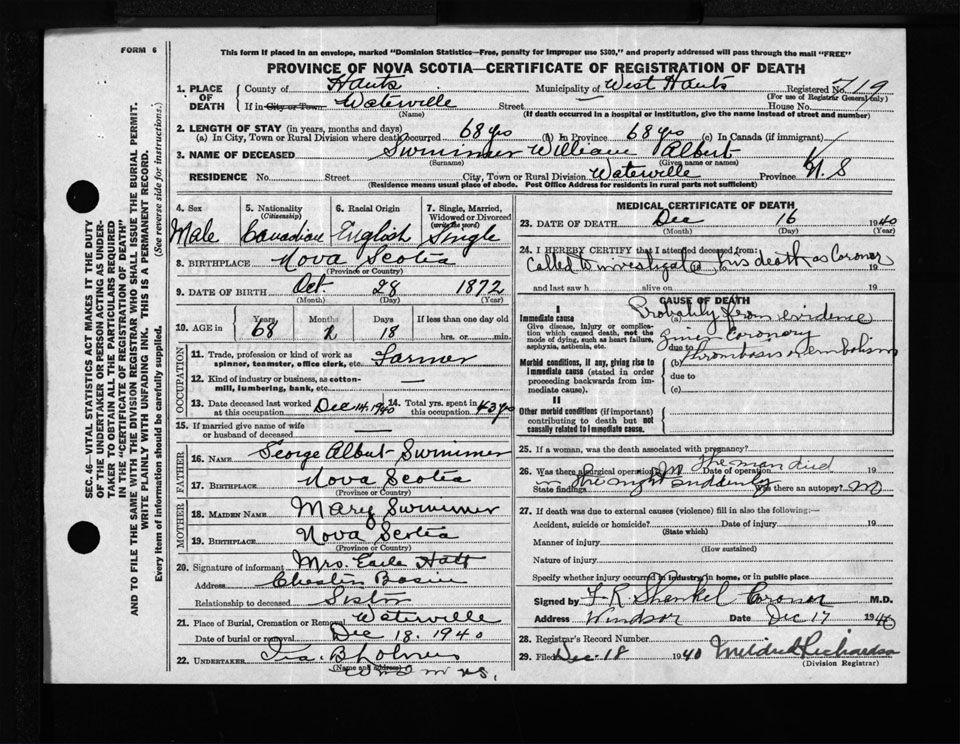 FORM 6
This form if placed in an envelope, marked "Dominion Statistics—Free, penalty for improper use $300," and properly addressed will pass through the mail "FREE"
PROVINCE OF NOVA SCOTIA—CERTIFICATE OF REGISTRATION OF DEATH
1. PLACE OF DEATH
County of Hants Municipality of West Hants Registered No. 719
(For use of Registrar General only)
If in City or Town Waterville Street House No.
(Name) (If death occurred in a hospital or institution, give the name instead of street and number)
2. LENGTH OF STAY (in years, months and days)
(a) In City, Town or Rural Division where death occurred 68 yrs (b) In Province 68 yrs (c) In Canada (if immigrant)
3. NAME OF DECEASED Swimmer William Albert
(Surname) (Given name or names)
RESIDENCE No. Street City, Town or Rural Division Waterville Province N.S
(Residence means usual place of abode. Post Office Address for residents in rural parts not sufficient)
4. Sex 5. Nationality (Citizenship) 6. Racial Origin 7. Single, Married, Widowed or Divorced (write the word)
Male Canadian English Single
8. BIRTHPLACE Nova Scotia
(Province or Country)
9. DATE OF BIRTH Oct. 28 1872
(Month) (Day) (Year)
10. AGE in Years Months Days If less than one day old
68 2 18 hrs. or min.
OCCUPATION
11. Trade, profession or kind of work as spinner, teamster, office clerk, etc. Farmer
12. Kind of industry or business, as cotton-mill, lumbering, bank, etc. —
13. Date deceased last worked at this occupation Dec 14, 1940 14. Total yrs. spent in this occupation 43 yrs
15. If married give name of wife or husband of deceased —
FATHER
16. NAME George Albert Swimmer
17. BIRTHPLACE Nova Scotia
(Province or Country)
MOTHER
18. MAIDEN NAME Mary Swimmer
19. BIRTHPLACE Nova Scotia
(Province or Country)
20. Signature of informant Mrs. Earle Hatt
Address Chester Basin
Relationship to deceased Sister
21. Place of Burial, Cremation or Removal Waterville
Date of burial or removal Dec 18, 1940
22. UNDERTAKER Ira B
(Name and address)
N.S.
MEDICAL CERTIFICATE OF DEATH
23. DATE OF DEATH Dec 16 1940
(Month) (Day) (Year)
24. I HEREBY CERTIFY that I attended deceased from:
Called to investigate his death as Coroner 19
and last saw h alive on 19
CAUSE OF DEATH
I
Immediate cause
Give disease, injury or complication which caused death, not the mode of dying, such as heart failure, asphyxia, asthenia, etc.
(a) Probably from evidence
given Coronary
due to
Morbid conditions, if any, giving rise to immediate cause (stated in order proceeding backwards from immediate cause).
(b) thrombosis or embolism
due to
(c)
II
Other morbid conditions (if important) contributing to death but not causally related to immediate cause.
25. If a woman, was the death associated with pregnancy?
26. Was there a surgical operation? No Date of operation 19
The man died
in the night suddenly
State findings Was there an autopsy? No
27. If death was due to external causes (violence) fill in also the following:—
Accident, suicide or homicide? Date of injury 19
(State which)
Manner of injury
(How sustained)
Nature of injury
Specify whether injury occurred in industry, in home, or in public place
Signed by F. R. Shankel Coroner M.D.
Address Windsor Date Dec 17 1940
28. Registrar's Record Number
29. Filed Dec. 18 1940 Mildred Richardson
(Division Registrar)
SEC. 46—VITAL STATISTICS ACT MAKES IT THE DUTY
OF THE UNDERTAKER OR PERSON ACTING AS UNDER-
TAKER TO OBTAIN ALL THE PARTICULARS REQUIRED
IN THE "CERTIFICATE OF REGISTRATION OF DEATH"
AND TO FILE THE SAME WITH THE DIVISION REGISTRAR WHO SHALL ISSUE THE BURIAL PERMIT.
WRITE PLAINLY WITH UNFADING INK. THIS IS A PERMANENT RECORD.
Every item of information should be carefully supplied. (See reverse side for instructions.)